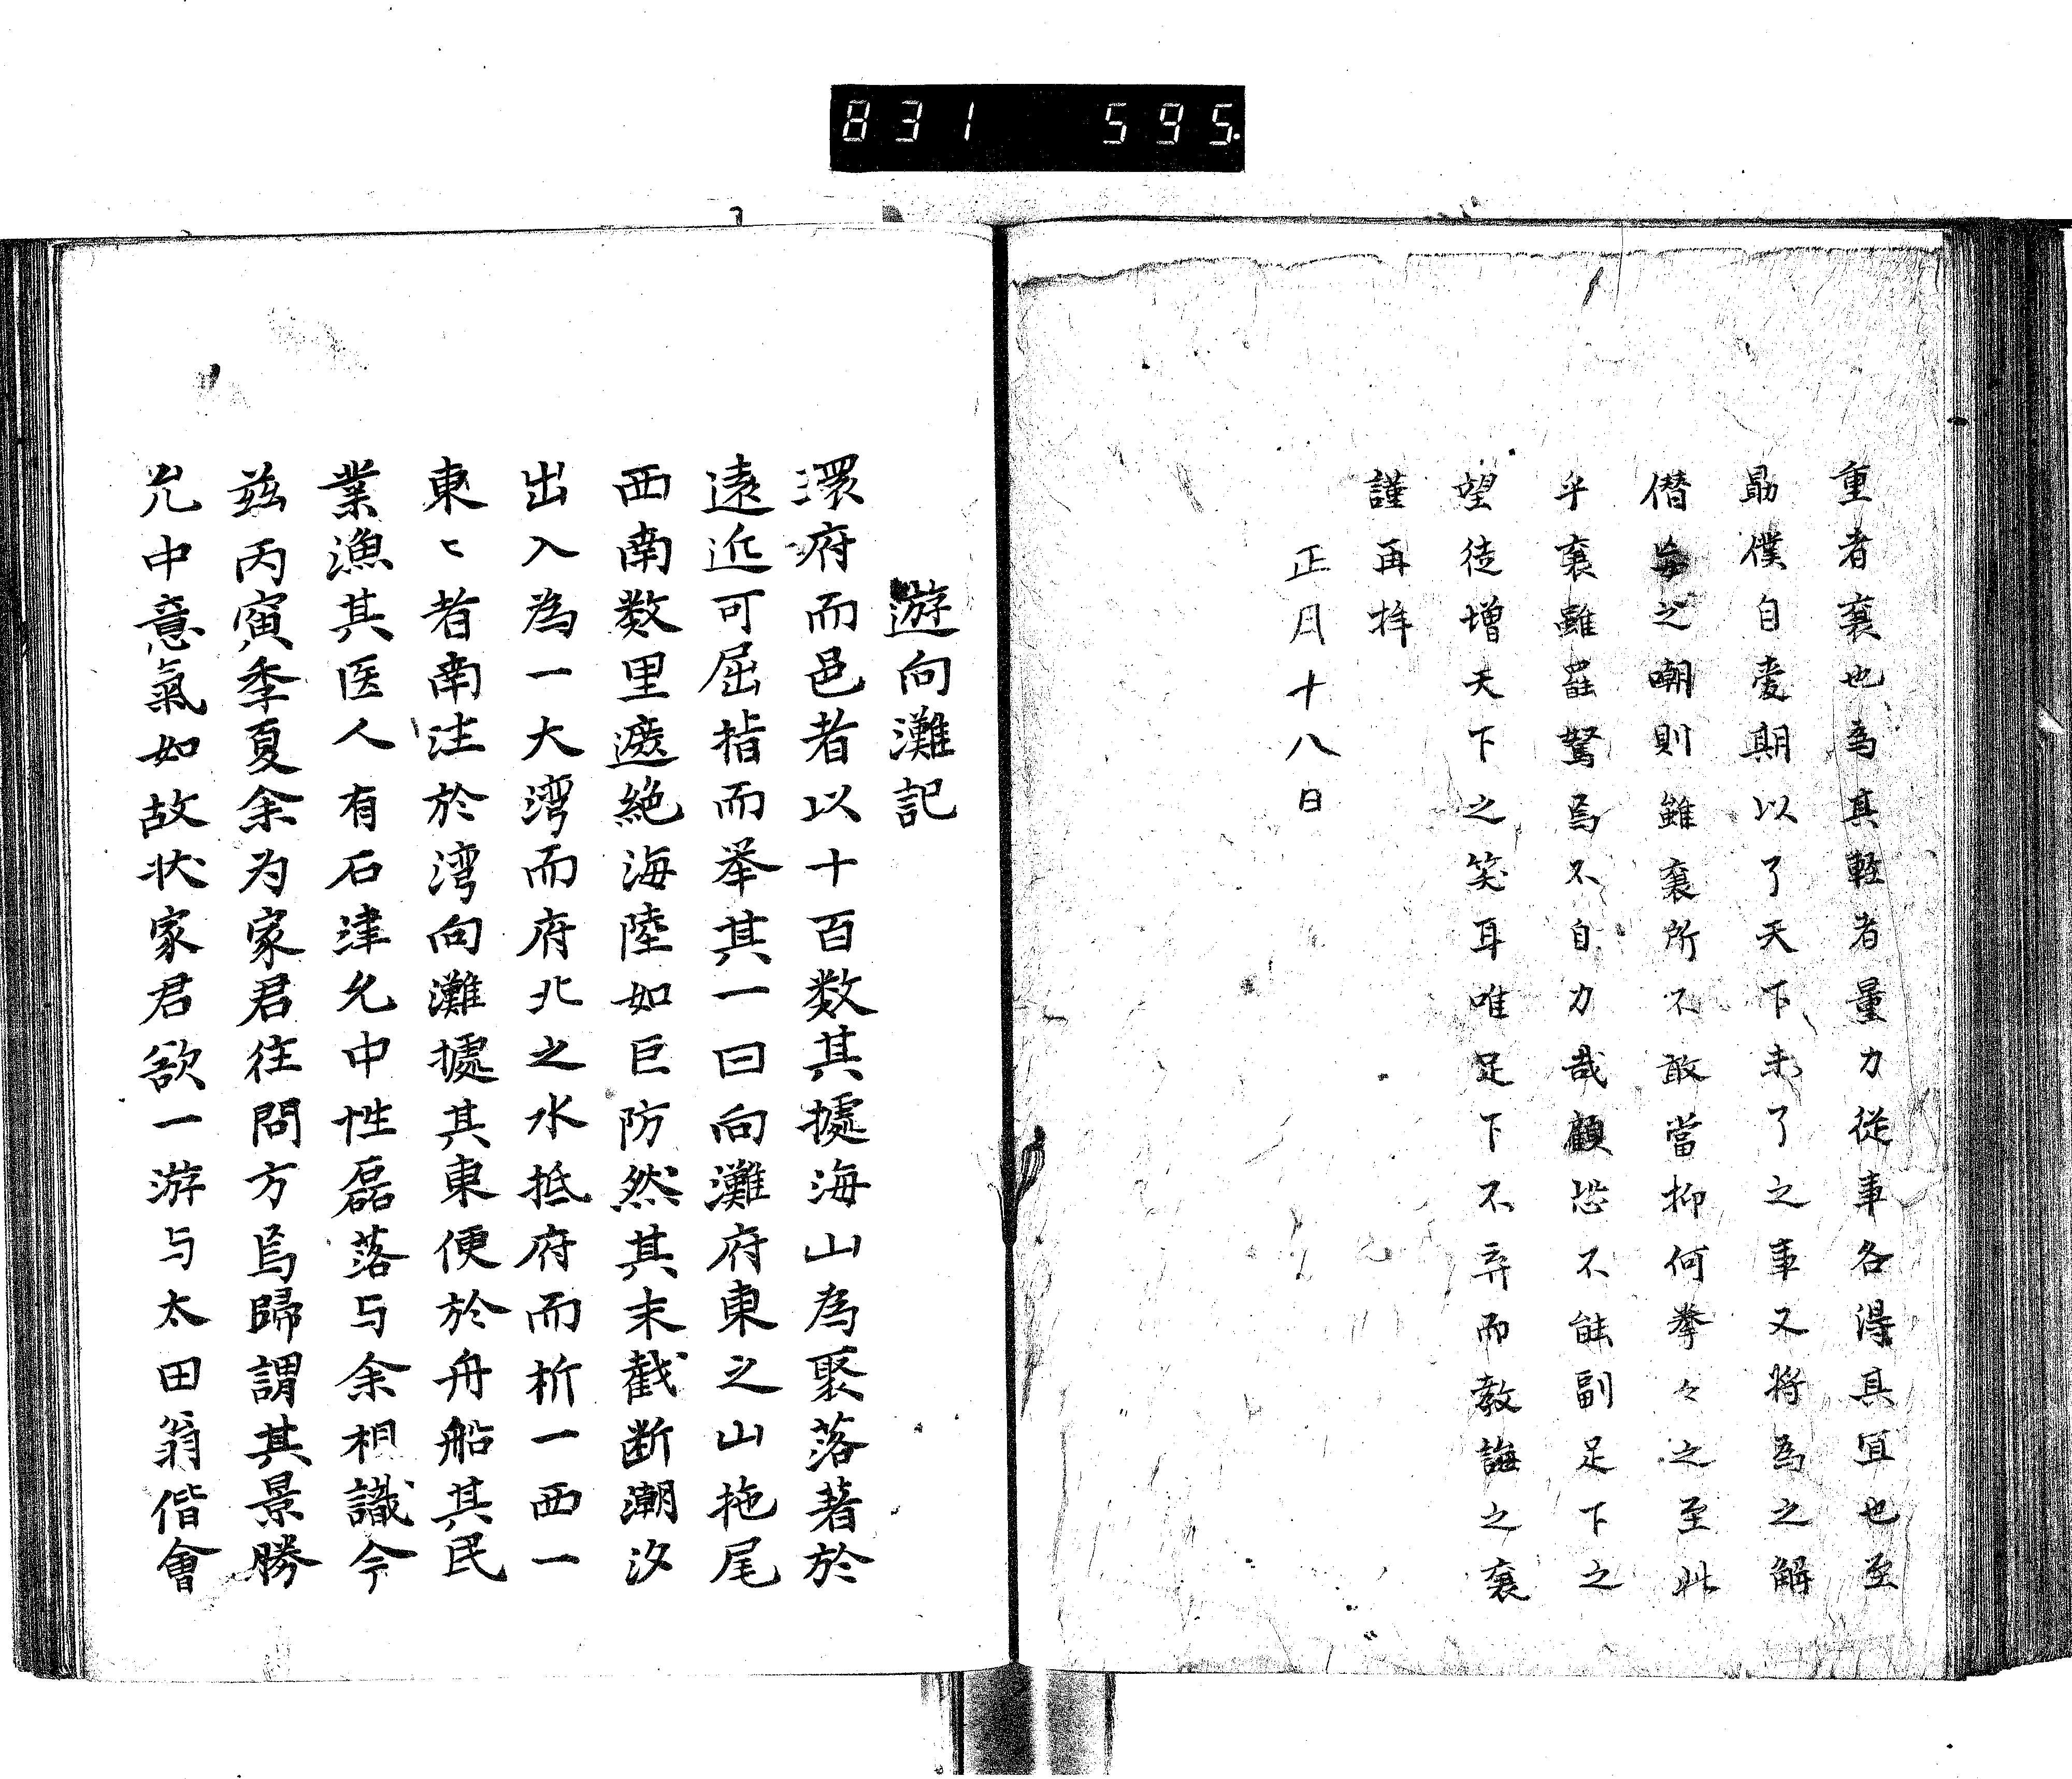 831 595.
重者襄也為其軽者量力従事各得其宜也至
勗僕自愛期以了天下未了之事又将為之解
僭毎之嘲則雖襄所不敢當抑何拳々之至此
乎襄雖罷駑焉不自力哉顧恐不能副足下之
望徒増天下之笑耳唯足下不弃而教誨之襄
謹再拝
正月十八日
遊向灘記
澴府而邑者以十百数其據海山為聚落著於
遠近可屈指而举其一曰向灘府東之山拖尾
西南数里遮絶海陸如巨防然其末截断潮汐
出入為一大湾而府北之水抵府而析一西一
東〻者南注於湾向灘據其東便於舟船其民
業漁其医人有石津允中性磊落与余相識今
茲丙寅季夏余为家君往問方焉歸謂其景勝
允中意氣如故状家君欲一游与太田翁偕會